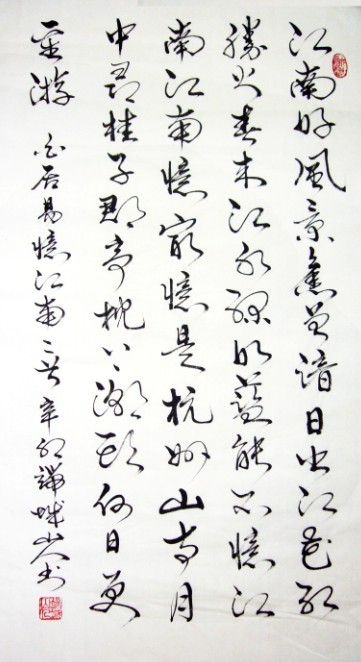 江南好風景舊曾諳日出江花紅
勝火春來江水綠如藍能不憶江
南江南憶最憶是杭州山寺月
中尋桂子郡亭枕上潮頭何日更
重游 白居易憶江南二首 辛卯 城山人书